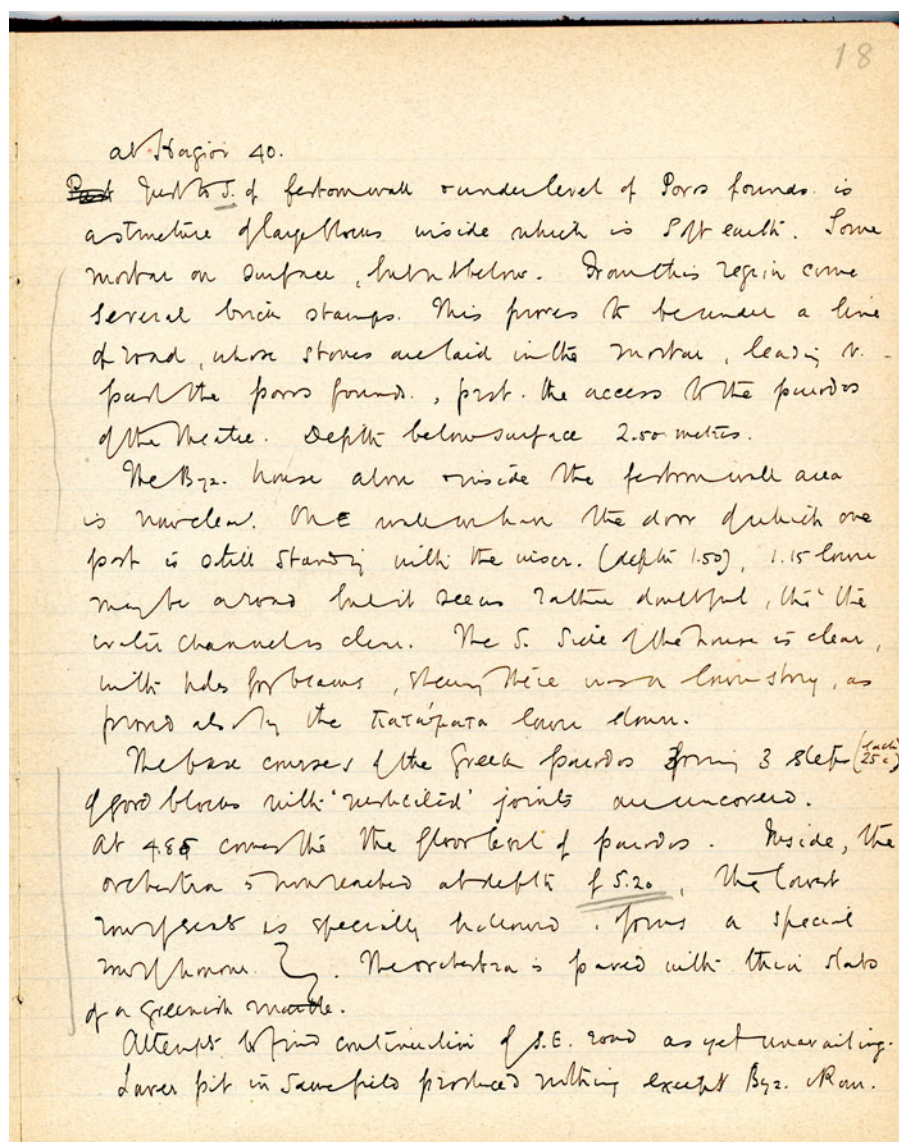 18
at Hagioi 40.
Just to S. of festoon wall & under level of Poros founds. is
a structure of large blocks inside which is soft earth. Some
mortar on surface, but not below. From this region come
several brick stamps. This proves to be under a line
of road, whose stones are laid in the mortar, leading
past the poros founds., past the access to the parodos
of the theatre. Depth below surface 2.50 metres.
The Byz. house above & inside the festoon wall area
is now clear. On E wall we have the door of which one
post is still standing with the inscr. (depth 1.50), 1.15 lower
may be a road but it seems rather doubtful, tho' the
water channel is clear. The S. side of the house is clear,
with holes for beams, shewing there was a lower story, as
proved also by the πατώματα lower down.
The base courses of the Greek parodos forming 3 steps (each 25 c)
of good blocks with joints are uncovered.
At 4.85 comes the the floor level of parodos. Inside, the
orchestra is now reached at depth of 5.20, the lowest
row of seats is specially hollowed & forms a special
row of honour. The orchestra is paved with thin slabs
of a greenish marble.
Attempts to find continuation of S.E. road as yet unavailing.
Lower pit in same field produced nothing except Byz. & Rom.